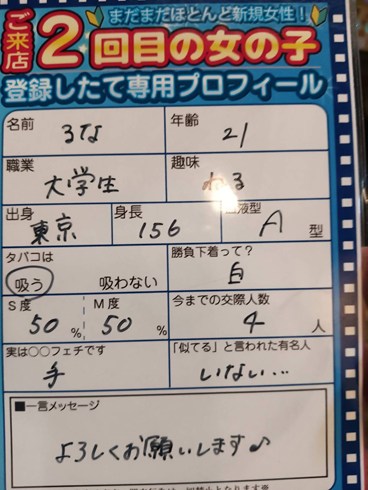 まだまだほとんど新規女性!
ご来店2回目の女の子
登録したて専用プロフィール
名前 るな 年齢 21
職業 大学生 趣味 ねる
出身 東京 身長 156 血液型 A 型
タバコは 吸う 吸わない 勝負下着って? 白
S度 50% M度 50% 今までの交際人数 4人
実は○○フェチです 手 「似てる」と言われた有名人 いない…
■一言メッセージ
よろしくお願いします♪